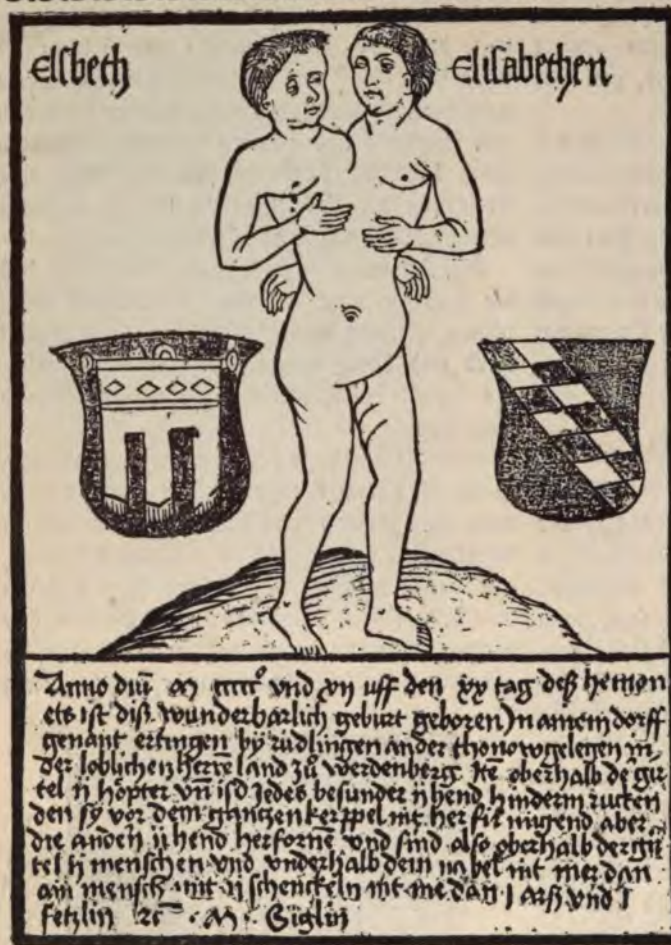 Elsbeth
Elisabethen
Anno diū M ccccc⁰ vnd xij uff den xx tag deß hemon
ets ist diß wunderbarlich geburt geboren Jn amem dorff
genant ertingen by rüdlingen an der thonow gelegen in
der loblichen herrē land zů werdenberg Itē oberhalb de gür
tel ij höpter vn̄ jedes besunder ij hend hinderm rucken
den sy vor dem gantzen kerppel nit her für mugend aber
die anden ij hend herfornē vnd sind also oberhalb der gür
tel ij menschen vnd vnderhalb dem nabel nit mer dan
ain mensch mit ij schenckeln nit me dan j arß vnd j
fetzlin ꝛc M Siglin